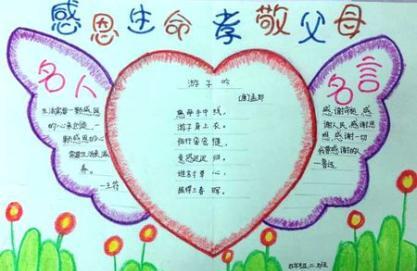 感恩生命 孝敬父母
名人
生活需要一颗感恩
的心来创造，一
颗感恩的心
需要生活来滋
养。
—王符
游子吟
[唐]孟郊
慈母手中线，
游子身上衣。
临行密密缝，
意恐迟迟归。
谁言寸草心，
报得三春晖。
名言
感谢命运，感
谢人民，感谢思
想，感谢一切
我要感谢的人
—鲁迅